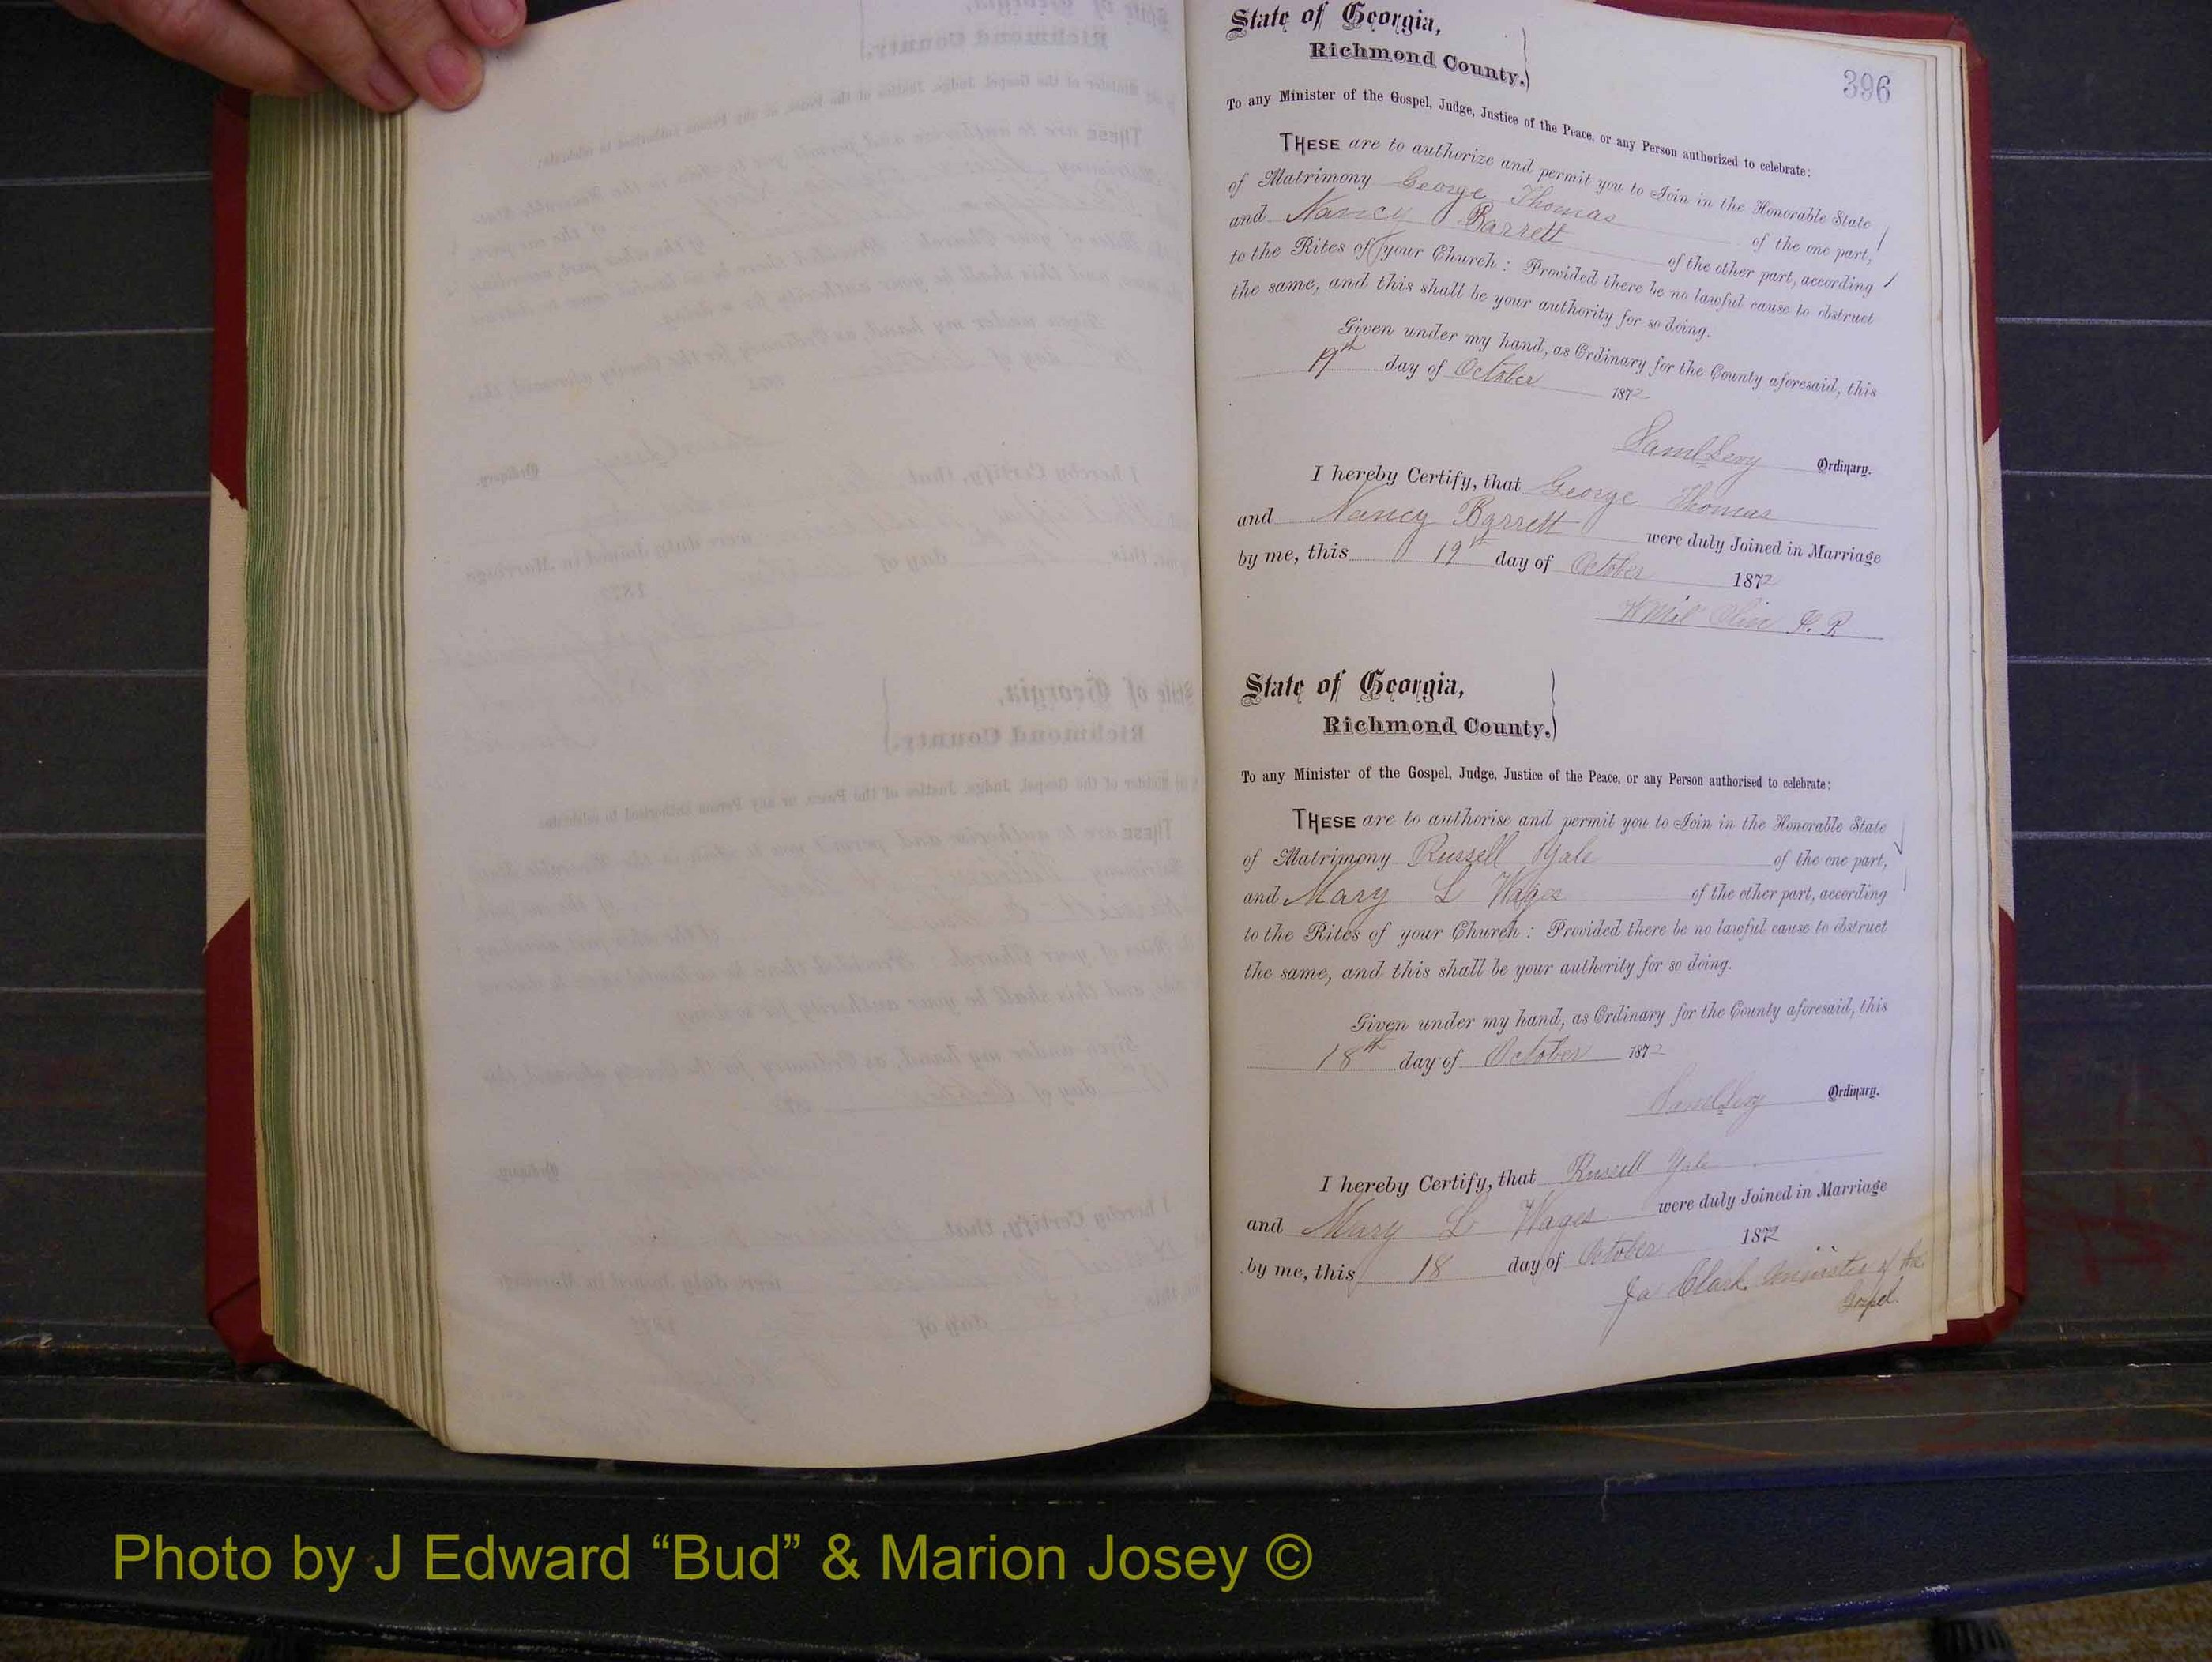 396
State of Georgia,
Richmond County.
To any Minister of the Gospel, Judge, Justice of the Peace, or any Person authorized to celebrate:
THESE are to authorize and permit you to Join in the Honorable State
of Matrimony George Thomas of the one part,
and Nancy Barrett of the other part, according
to the Rites of your Church: Provided there be no lawful cause to obstruct
the same, and this shall be your authority for so doing.
Given under my hand, as Ordinary for the County aforesaid, this
19th day of October 1872
Saml Levy Ordinary.
I hereby Certify, that George Thomas
and Nancy Barrett were duly Joined in Marriage
by me, this 19th day of October 1872
State of Georgia,
Richmond County.
To any Minister of the Gospel, Judge, Justice of the Peace, or any Person authorised to celebrate:
THESE are to authorise and permit you to Join in the Honorable State
of Matrimony Russell Yale of the one part,
and Mary L Wages of the other part, according
to the Rites of your Church: Provided there be no lawful cause to obstruct
the same, and this shall be your authority for so doing.
Given under my hand, as Ordinary for the County aforesaid, this
18th day of October 1872
Saml Levy Ordinary.
I hereby Certify, that Russell Yale
and Mary L Wages were duly Joined in Marriage
by me, this 18 day of October 1872
Ja Clark minister of the
Gospel.
Photo by J Edward “Bud” & Marion Josey ©